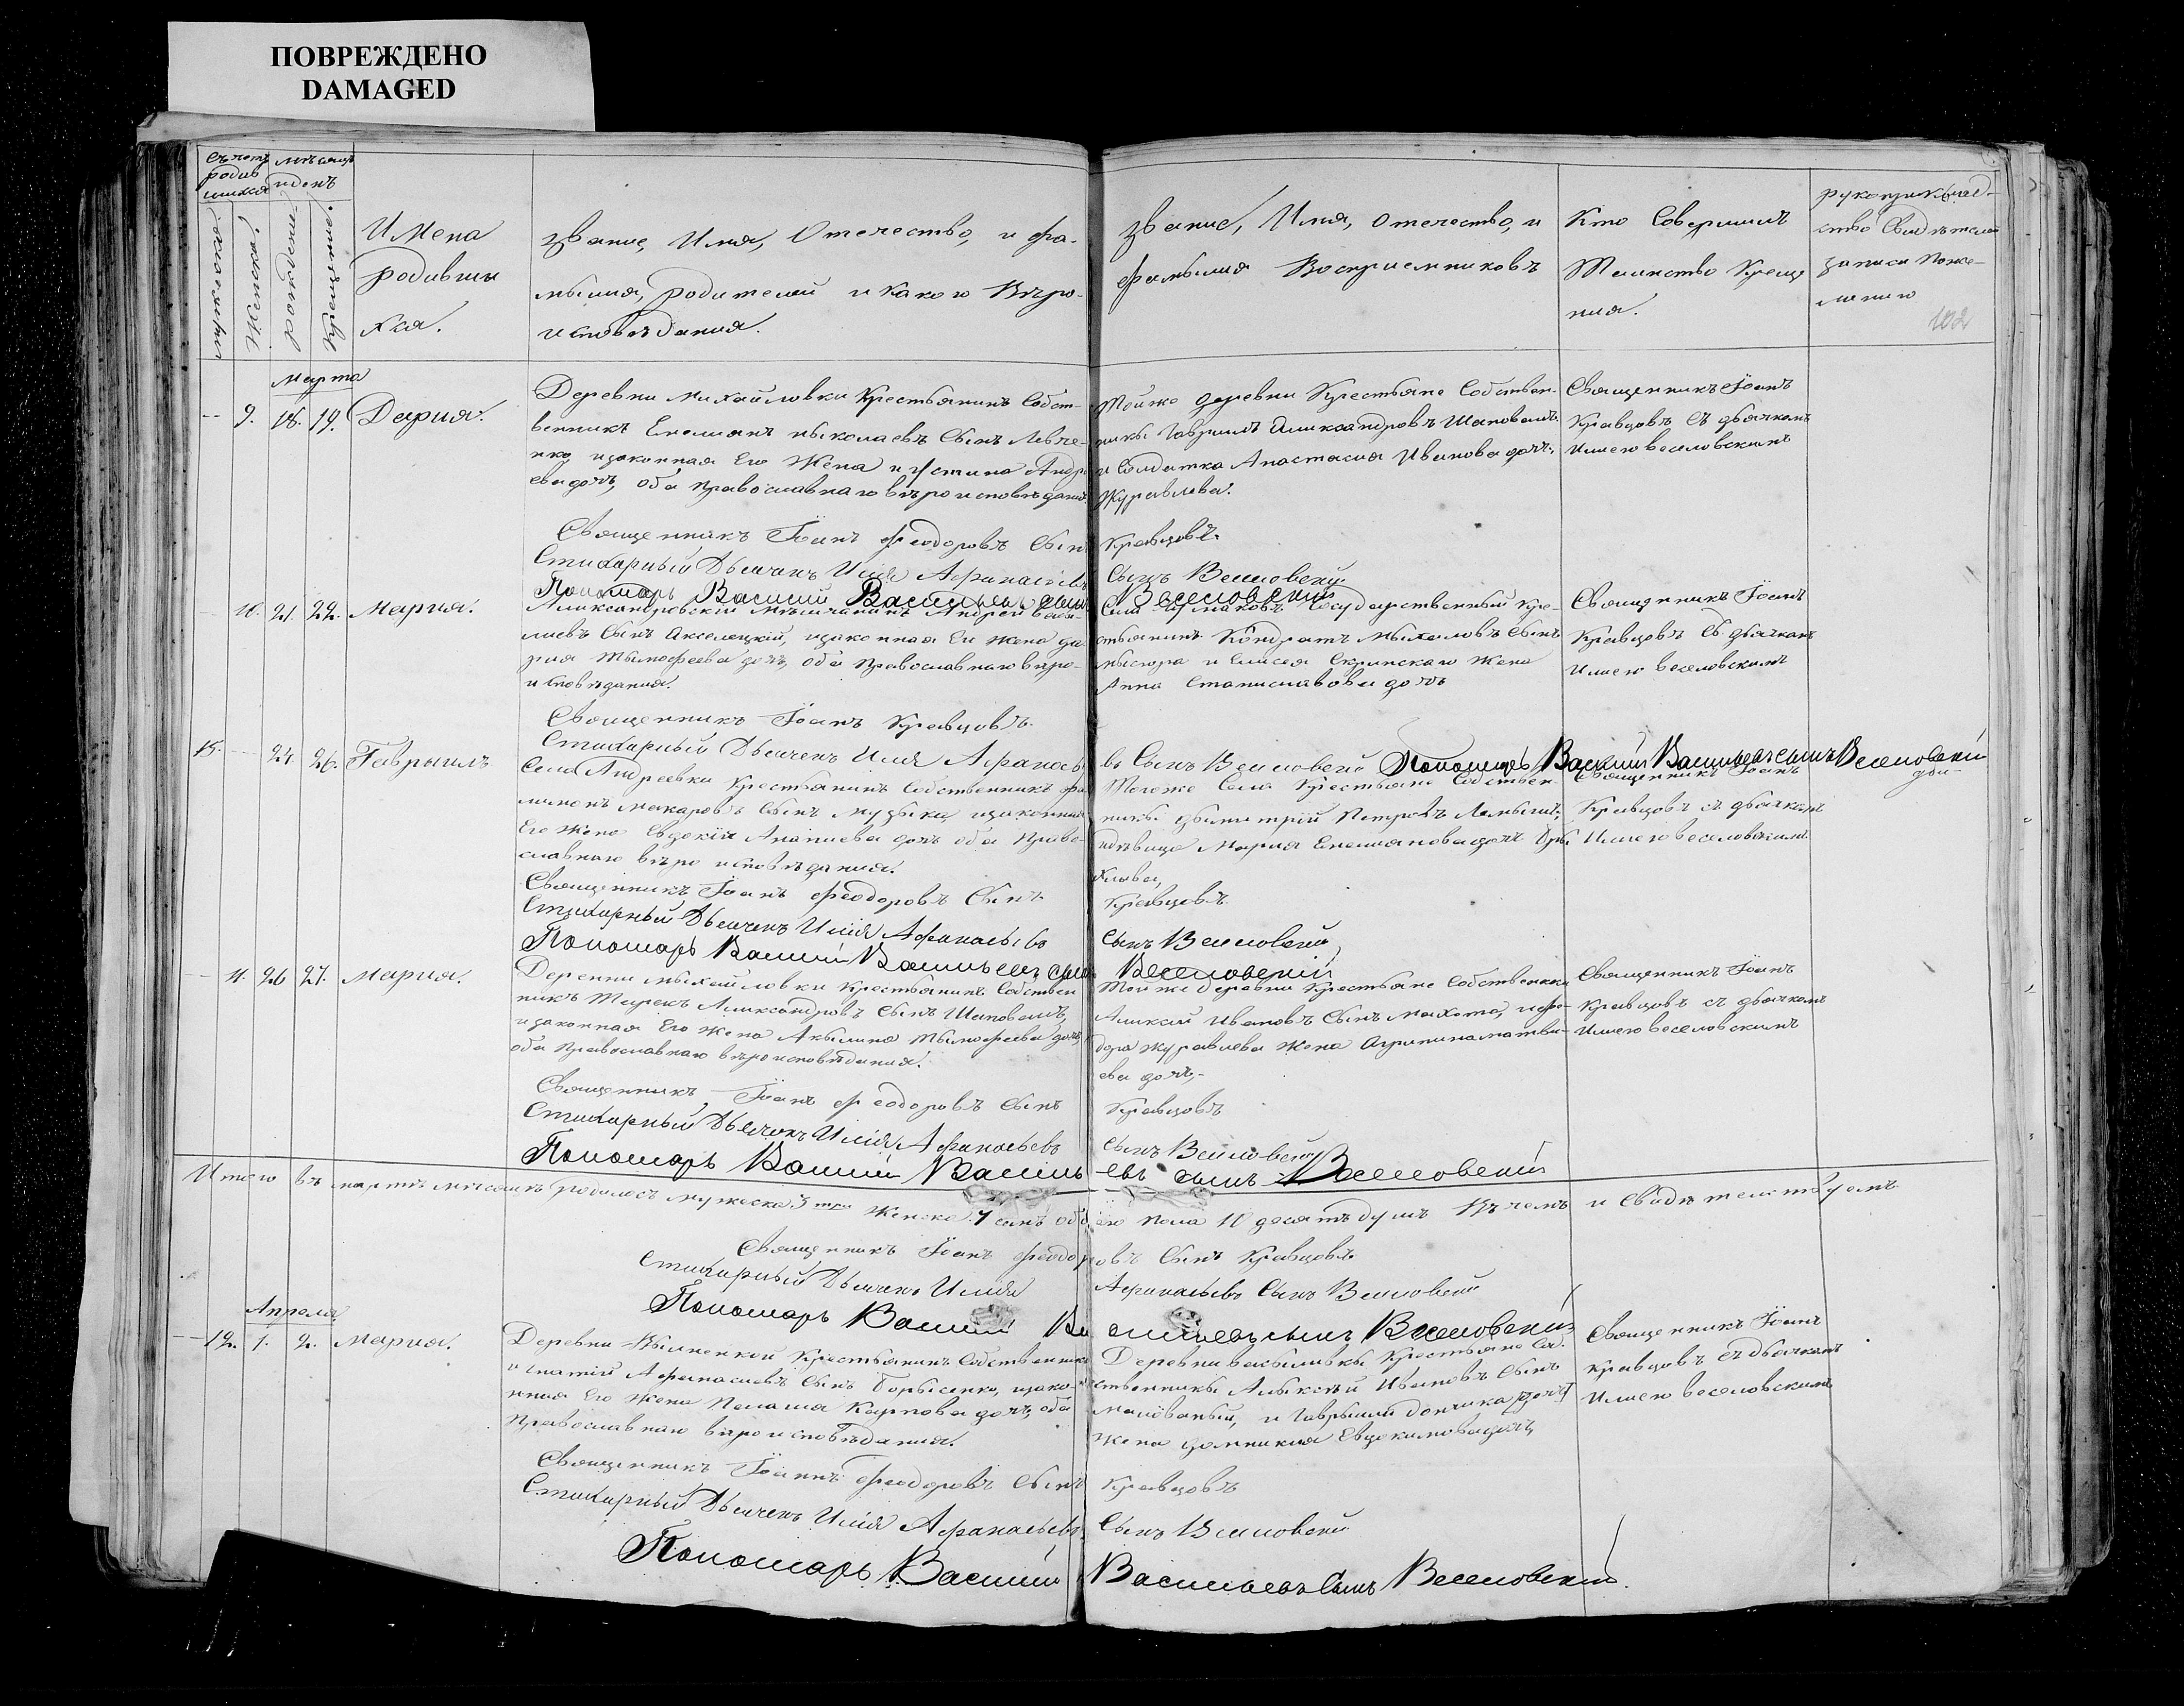 ПОВРЕЖДЕНО
DAMAGED
Счетъ родив шихся
мѣсяцъ и день
мужеска.
Женска.
рожденія
Крещеніе.
Имена
родивши
хся.
Званіе, Имя, Отечество, и фа-
мылія, родителей и какого Вѣро-
исповѣданія.
Званіе, Имя, отечество, и
фамылия Воспріемниковъ
Кто Совершилъ
Таинство Креще
ния.
рукоприклад-
ство Свидѣтелей
записи по же-
ланию
102
Марта
9. 18. 19. Дария.
Деревни Михайловки Крестьянинъ Собст-
венникъ Емелиянъ николаевъ Сынъ Левче-
нко, изаконная Его Жена иустина Андре
ева дочь, оба православнаго вѣроисповѣдания.
Тойже деревни Крестьяне Собствен-
ники Гаврыилъ Аликсандровъ Шаповалъ.
и Солдатка Анастасия Иванова дочь.
Журавлева.
Священникъ Іоанъ
Кравцовъ съ дьячкомъ
Илиею веселовскимъ
Священникъ Іоанъ Феодоровъ Сынъ Кравцовъ.
Стихарный Дьячекъ Илія Афанасьевъ Сынъ Веселовскій
Пономарь Василий Васильевъ сынъ Веселовский
10. 21. 22. Мария.
Аликсандровский мѣщанинъ Андрей Васи-
лиевъ Сынъ Акселецкій, изаконная Его Жена да
рия Тымофеева дочь, оба Православнаго вѣро-
исповѣдания.
Села Государственный кре-
стьянинъ Кондратъ Сынъ
и Елисея Скринскаго Жена
Анна Станиславова дочь
Священникъ Іоанъ
Кравцовъ Съ дьячкомъ
Илиею веселовскимъ
Священникъ Іоанъ Кравцовъ.
Стихарный Дьячекъ Илія Афанась
въ Сынъ Веселовский Пономарь Василий Васильевъ сынъ Веселовский
15. 24. 26. Гаврыилъ
Села Андреевки Крестьянинъ Собственникъ фи
лимонъ макаровъ Сынъ музыка изаконная
Его Жена Евдокія Ананиева дочь оба Право-
славнаго вѣроисповѣдания.
Тогоже Села Крестьяне Собствен-
ники дымитрій Петровъ
идѣвица Мария Емелианова дочь
хлова,
Священникъ Іоанъ
Кравцовъ съ дьячкомъ
Илиею веселовскимъ.
Священникъ Іоанъ Феодоровъ Сынъ Кравцовъ
Стихарный Дьячекъ Илія Афанасьевъ Сынъ Веселовский
Пономарь Василий Васильевъ сынъ Веселовский
11. 26 27. Мария.
Деревни мыхайловки Крестьянинъ Собствен
никъ Аликсандровъ Сынъ Шаповалъ,
изаконная Его Жена Акылина Тымофеева дочь,
оба Православнаго вѣроисповѣдания.
Тойже деревни Крестьяне Собственники
Аликсій Ивановъ Сынъ Махота, и фео-
дора Журавлева Жена Агрипина матви-
ева дочь,
Священникъ Іоанъ
Кравцовъ съ дьячкомъ
Илиею веселовскимъ
Священникъ Іоанъ Феодоровъ Сынъ Кравцовъ
Стихарный Дьячекъ Илія Афанасьевъ Сынъ Веселовский
Пономарь Василий Васильевъ сынъ Веселовский
Итого въ мартѣ мѣсяцѣ родилось мужеска 3 три Женска 7 семь обоего пола 10 десять душъ Въ чемъ и Свидѣтелствуемъ
Священникъ Іоанъ Феодоровъ Сынъ Кравцовъ
Стихарный Дьячекъ Илія Афанасьевъ Сынъ Веселовский
Пономарь Василий Васильевъ сынъ Веселовский
Апреля
12. 1. 2. Мария.
Деревни Крестьянинъ Собственникъ
игнатій Афанасиевъ Сынъ Борысенко, изако-
нная Его Жена Пелагия Карпова дочь, оба
Православнаго вѣроисповѣдания.
Деревни Крестьяне Соб-
ственникы Алыксѣй Ивановъ Сынъ
Малёваный, и Гаврыила
Жена домникия Евдокимова дочь,
Священникъ Іоанъ
Кравцовъ съ дьячкомъ
Илиею веселовскимъ
Священникъ Іоаннъ Феодоровъ Сынъ Кравцовъ
Стихарный Дьячекъ Илія Афанасьевъ Сынъ Веселовский
Пономарь Василий Васильевъ Сынъ Веселовский.